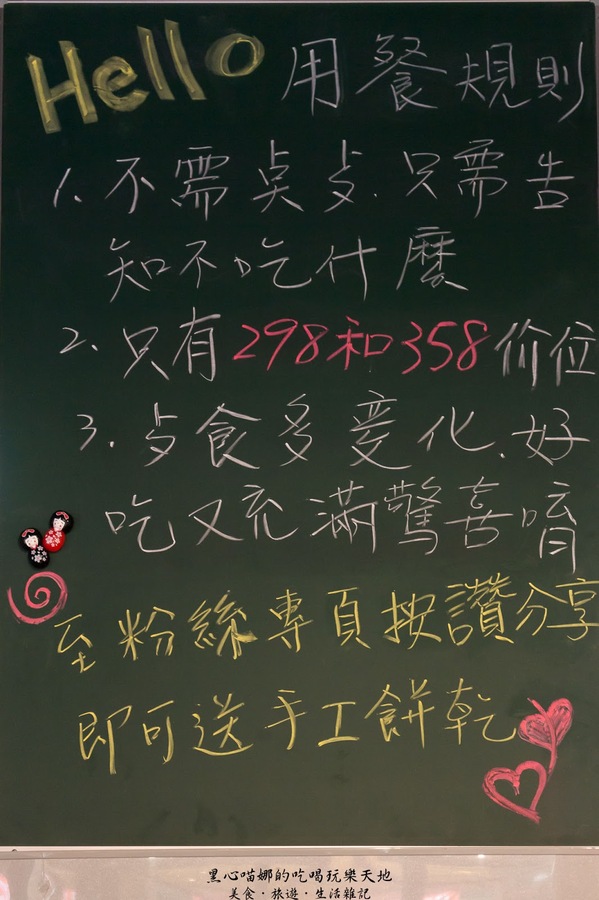 Hello 用餐規則
1. 不需奌歺. 只需告
知不吃什麼
2. 只有298和358价位
3. 歺食多変化. 好
吃又充滿驚喜唷
至粉絲專頁按讚分享
即可送手工餅乾
黑心喵娜的吃喝玩樂天地
美食·旅遊·生活雜記